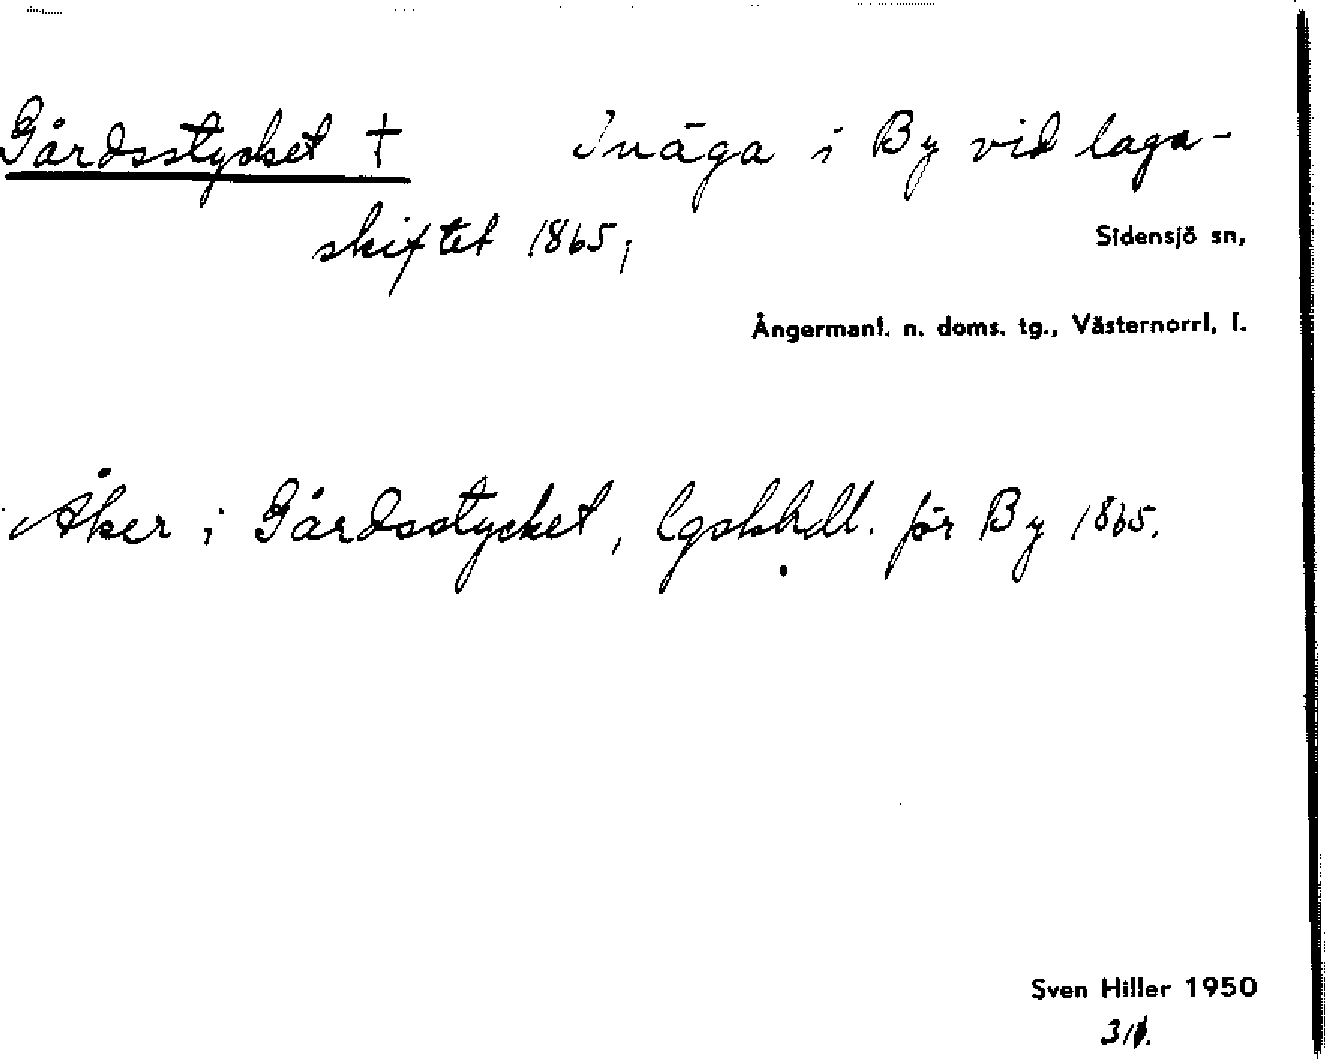 Gårdsstycket † Inäga i By vid laga-
skiftet 1865,
Sidensjö sn,
Ångermanl. n. doms. tg., Västernorrl. l.
Åker i Gårdsstycket, lgskhdl. för By 1865.
Sven Hiller 1950